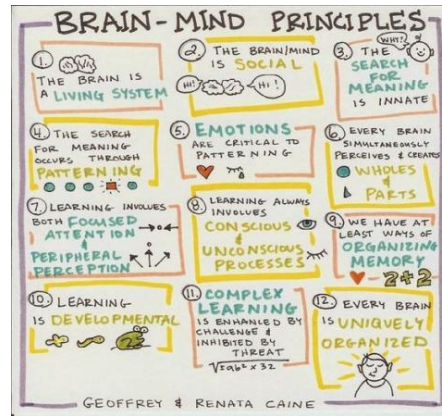 BRAIN-MIND PRINCIPLES
1.
THE BRAIN IS
A LIVING SYSTEM
2. THE BRAIN/MIND
IS SOCIAL
HI!
HI!
WHY?
3. THE
SEARCH
FOR
MEANING
IS INNATE
4. THE SEARCH
FOR MEANING
OCCURS THROUGH
PATTERNING
5. EMOTIONS
ARE CRITICAL TO
PATTERNING
6. EVERY BRAIN
SIMULTANEOUSLY
PERCEIVES & CREATES
WHOLES
& PARTS
7. LEARNING INVOLVES
BOTH FOCUSED
ATTENTION
&
PERIPHERAL
PERCEPTION
8. LEARNING ALWAYS
INVOLVES
CONSCIOUS
&
UNCONSCIOUS
PROCESSES
9. WE HAVE AT
LEAST WAYS OF
ORGANIZING
MEMORY
2+2
10. LEARNING
IS DEVELOPMENTAL
11. COMPLEX
LEARNING
IS ENHANCED BY
CHALLENGE &
INHIBITED BY
THREAT
12. EVERY BRAIN
IS UNIQUELY
ORGANIZED
GEOFFREY & RENATA CAINE